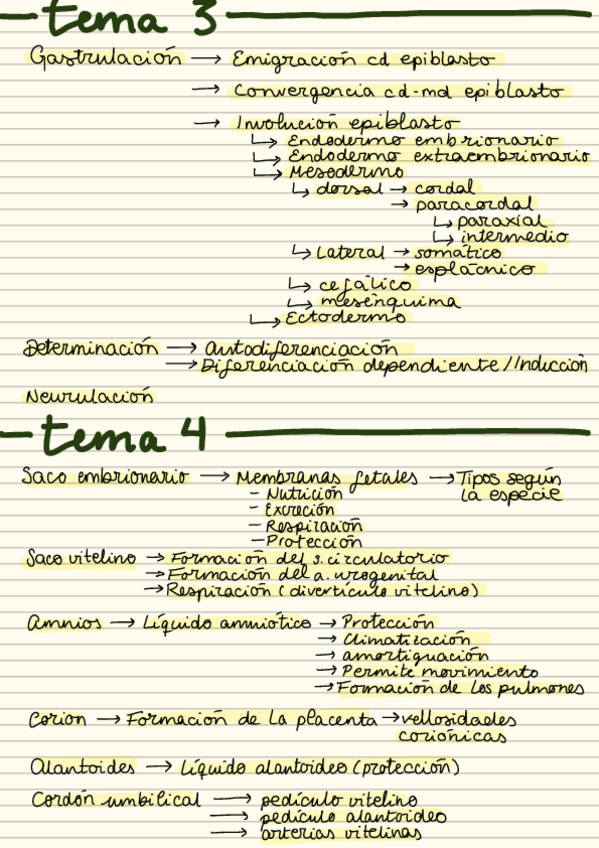 tema 3
Gastrulación → Emigración cd epiblasto
→ Convergencia cd-md epiblasto
→ Involución epiblasto
↳ Endodermo embrionario
↳ Endodermo extraembrionario
↳ Mesodermo
↳ dorsal → cordal
→ paracordal
↳ paraxial
↳ intermedio
↳ Lateral → somático
→ esplácnico
↳ cefálico
↳ mesénquima
↳ Ectodermo
Determinación → Autodiferenciación
→ Diferenciación dependiente//Inducción
Neurulación
tema 4
Saco embrionario → Membranas fetales → Tipos según
la especie
- Nutrición
- Excreción
- Respiración
- Protección
Saco vitelino → Formación del s. circulatorio
→ Formación del a. urogenital
→ Respiración (divertículo vitelino)
Amnios → Líquido amniótico → Protección
→ Climatización
→ amortiguación
→ Permite movimiento
→ Formación de los pulmones
Corion → Formación de la placenta → vellosidades
coriónicas
Alantoides → Líquido alantoideo (protección)
Cordón umbilical → pedículo vitelino
→ pedículo alantoideo
→ arterias vitelinas